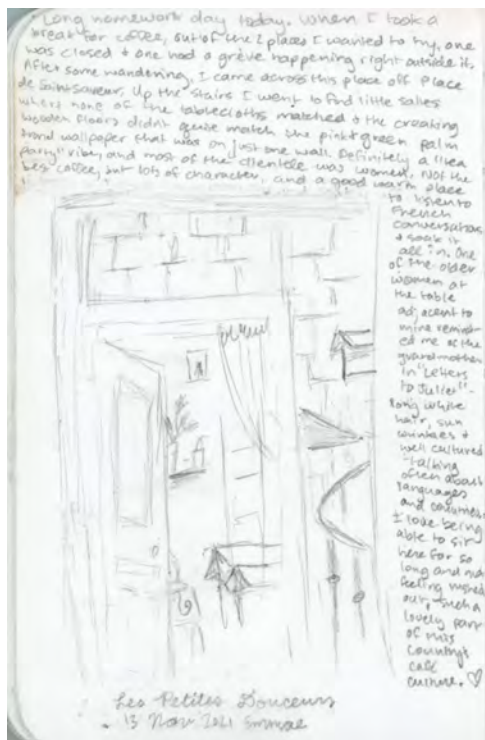 • Long homework day today. When I took a
break for coffee, out of the 2 places I wanted to try, one
was closed & one had a grève happening right outside it.
After some wandering, I came across this place off Place
de Saint Sauveur. Up the stairs I went to find little salles
where none of the tablecloths matched & the creaking
wooden floors didn't quite match the pink & green palm
frond wallpaper that was on just one wall. Definitely a "tea
party" vibe, and most of the clientele was women. Not the
best coffee, but lots of character, and a good warm place
to listen to
French
conversations
& soak it
all in. One
of the older
women at
the table
adjacent to
mine remind-
ed me of the
grandmother
in "Letters
to Juliet" -
long white
hair, sun
wrinkles &
well cultured
talking
often about
languages
and countries.
I love being
able to sit
here for so
long and not
feeling rushed
out, such a
lovely part
of this
country's
café
culture. ♡
Les Petites Douceurs
• 13 Nov 2021